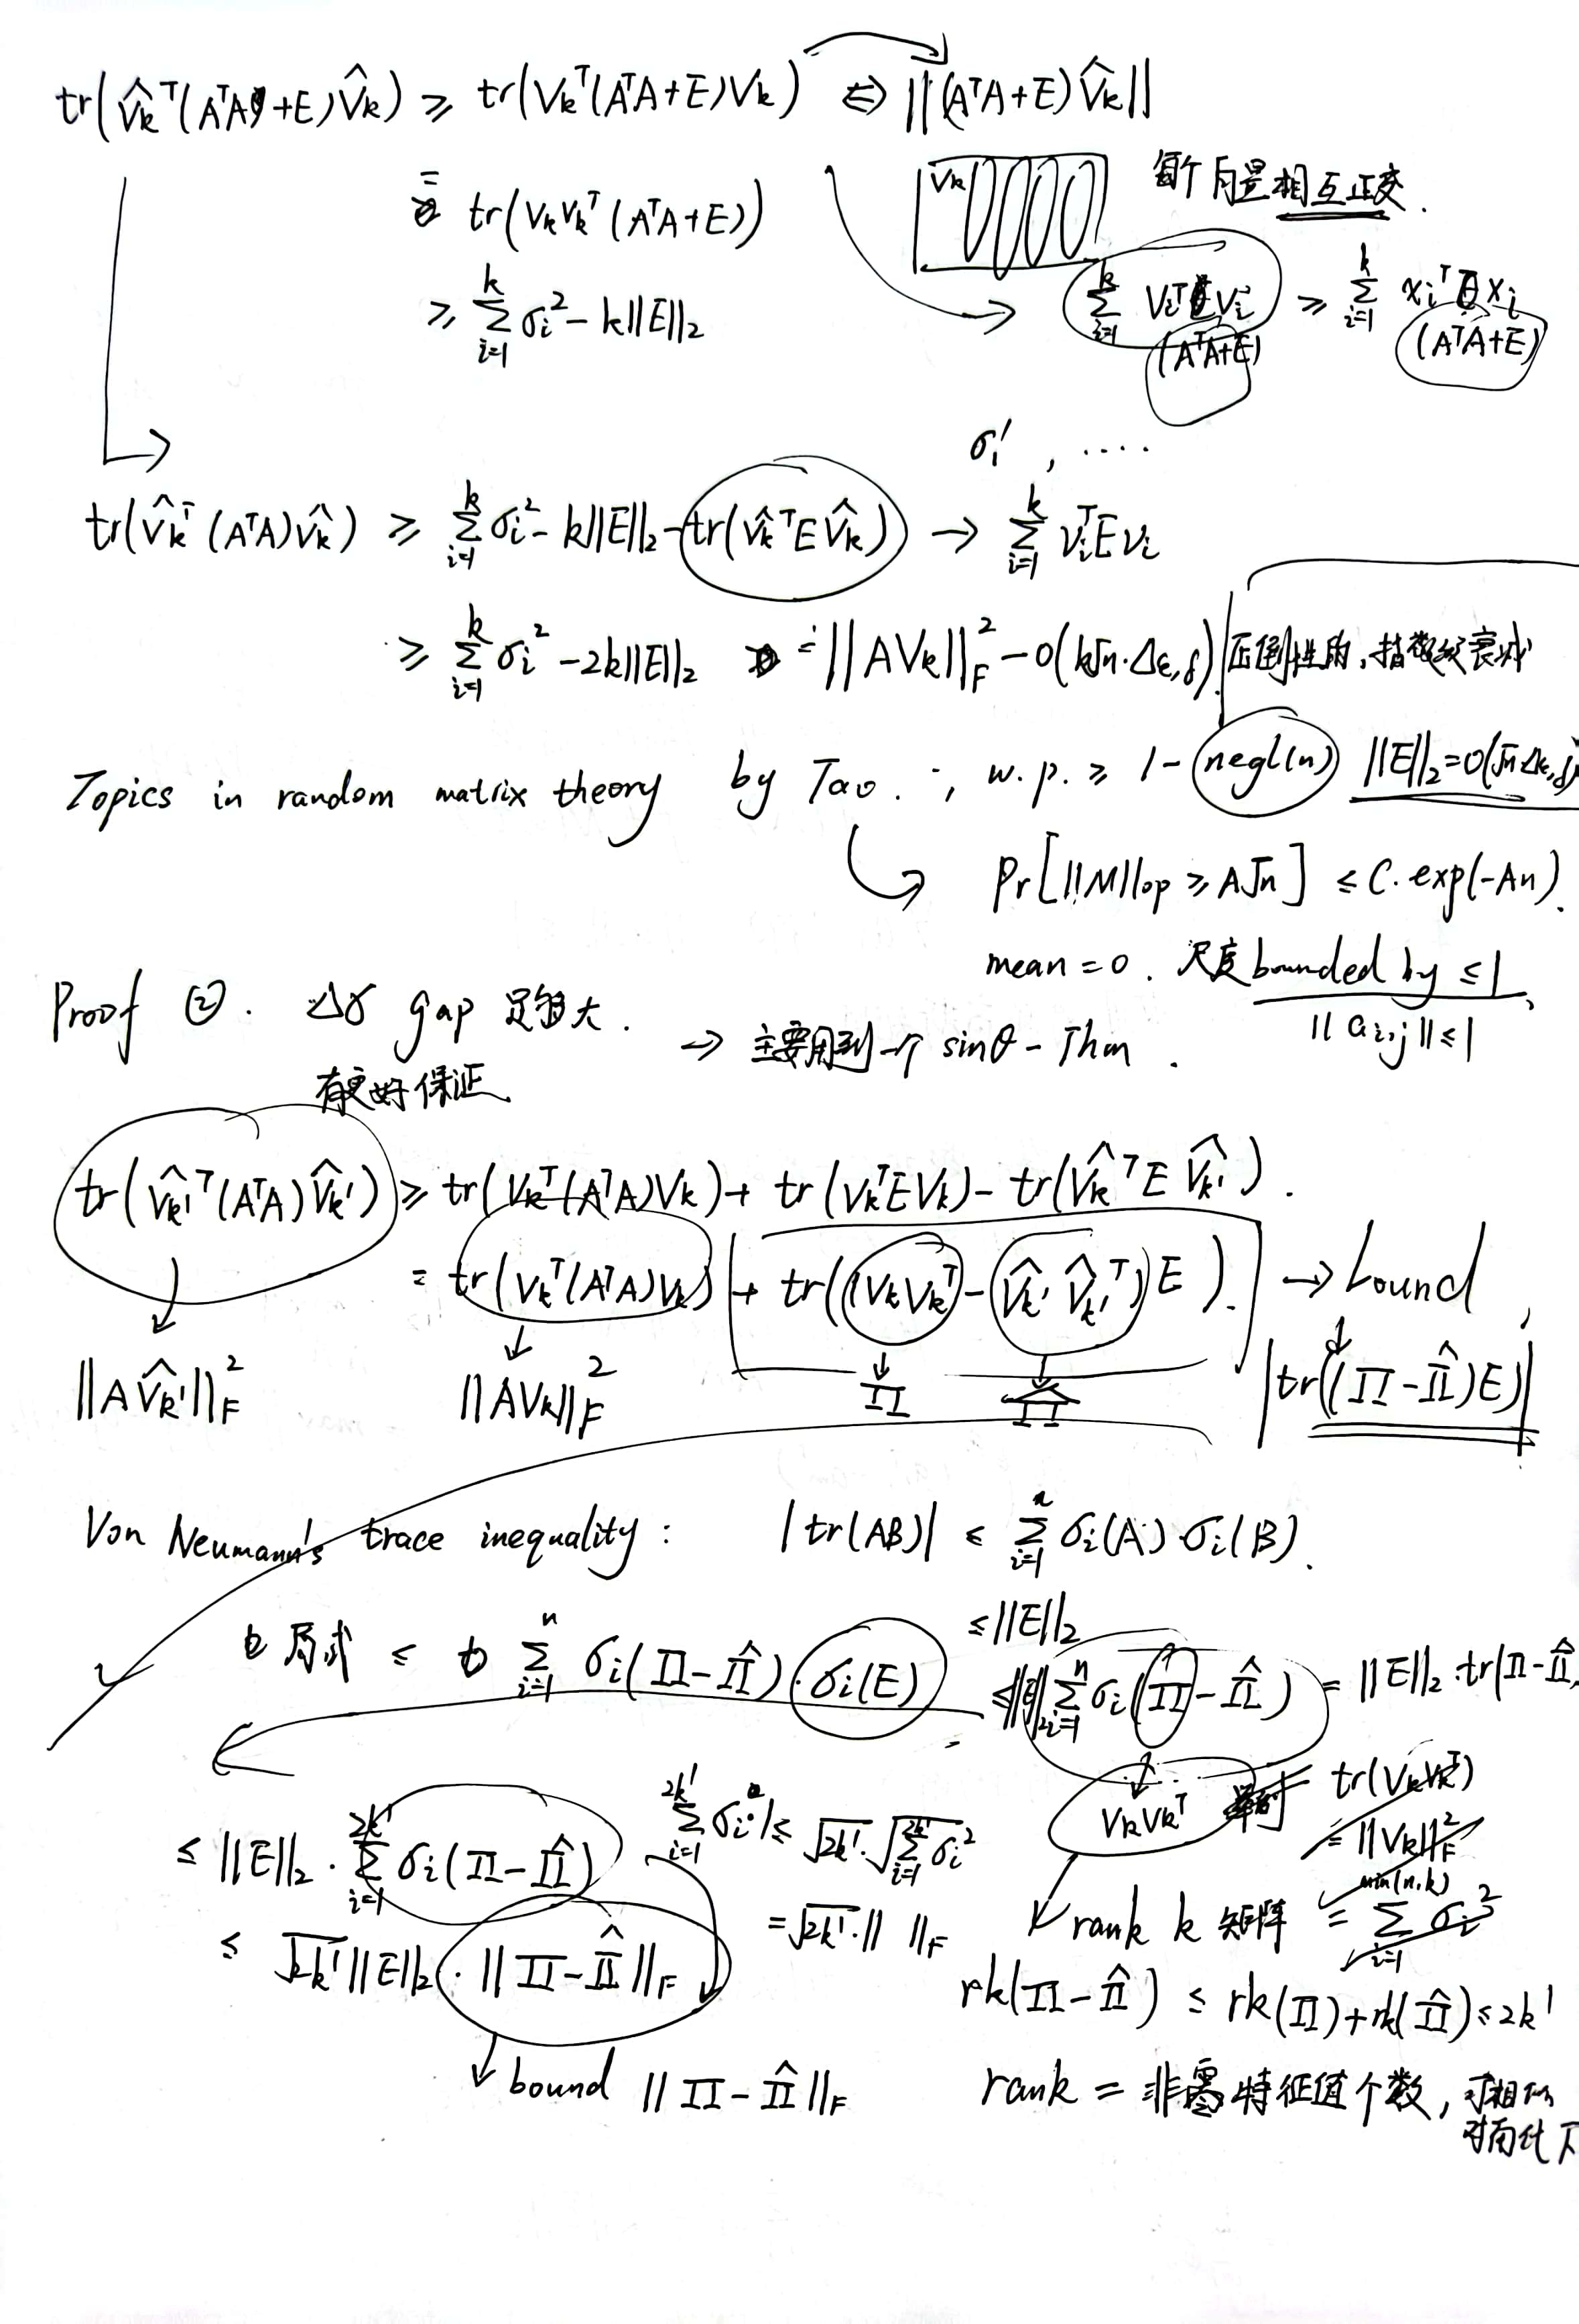 tr(V̂ₖᵀ(AᵀA+E)V̂ₖ) ≥ tr(Vₖᵀ(AᵀA+E)Vₖ) ⇔ ‖(AᵀA+E)V̂ₖ‖
= tr(VₖVₖᵀ(AᵀA+E))
Vₖ 每个向量相互正交.
≥ Σᵢ₌₁ᵏ σᵢ² - k‖E‖₂
→ Σᵢ₌₁ᵏ Vᵢᵀ (AᵀA+E) Vᵢ ≥ Σᵢ₌₁ᵏ xᵢᵀ (AᵀA+E) xᵢ
σᵢ' , ....
tr(V̂ₖᵀ(AᵀA)V̂ₖ) ≥ Σᵢ₌₁ᵏ σᵢ² - k‖E‖₂ - tr(V̂ₖᵀEV̂ₖ) → Σᵢ₌₁ᵏ νᵢᵀEνᵢ
≥ Σᵢ₌₁ᵏ σᵢ² - 2k‖E‖₂ = ‖AVₖ‖_F² - O(k√n·Δε,δ). 指数级衰减
Topics in random matrix theory by Tao. w.p. ≥ 1 - negl(n) ‖E‖₂=O(√nΔε,δ)
Pr[‖M‖op ≥ A√n] ≤ C·exp(-An).
mean = 0. 尺度 bounded by ≤ 1,
‖aᵢ,ⱼ‖ ≤ 1
Proof ②. Δσ gap 足够大.
有更好保证.
→ 主要用到一个 sinθ-Thm.
tr(V̂ₖ'ᵀ(AᵀA)V̂ₖ') ≥ tr(Vₖᵀ(AᵀA)Vₖ) + tr(VₖᵀEVₖ) - tr(V̂ₖᵀEV̂ₖ').
= tr(Vₖᵀ(AᵀA)Vₖ) + tr((VₖVₖᵀ - V̂ₖ'V̂ₖ'ᵀ)E). → bound,
‖AV̂ₖ'‖_F² ‖AVₖ‖_F² Π Π̂ |tr((Π-Π̂)E)|
Von Neumann's trace inequality: |tr(AB)| ≤ Σᵢ₌₁ⁿ σᵢ(A)·σᵢ(B).
≤‖E‖₂
原式 ≤ Σᵢ₌₁ⁿ σᵢ(Π-Π̂)·σᵢ(E) ≤ ‖E‖₂ Σᵢ₌₁ⁿ σᵢ(Π-Π̂) = ‖E‖₂·tr(Π-Π̂
VₖVₖᵀ tr(VₖVₖᵀ)
= ‖Vₖ‖_F²
≤ ‖E‖₂·Σᵢ₌₁²ᵏ' σᵢ(Π-Π̂) Σᵢ₌₁²ᵏ' σᵢ ≤ √2k'·√Σᵢ₌₁²ᵏ' σᵢ²
= √2k'·‖ ‖_F
rank k 矩阵 = Σᵢ₌₁^min(n,k) σᵢ²
≤ √2k' ‖E‖₂·‖Π-Π̂‖_F
rk(Π-Π̂) ≤ rk(Π)+rk(Π̂) ≤ 2k'
bound ‖Π-Π̂‖_F
rank = 非零特征值个数, 可相似
对角化